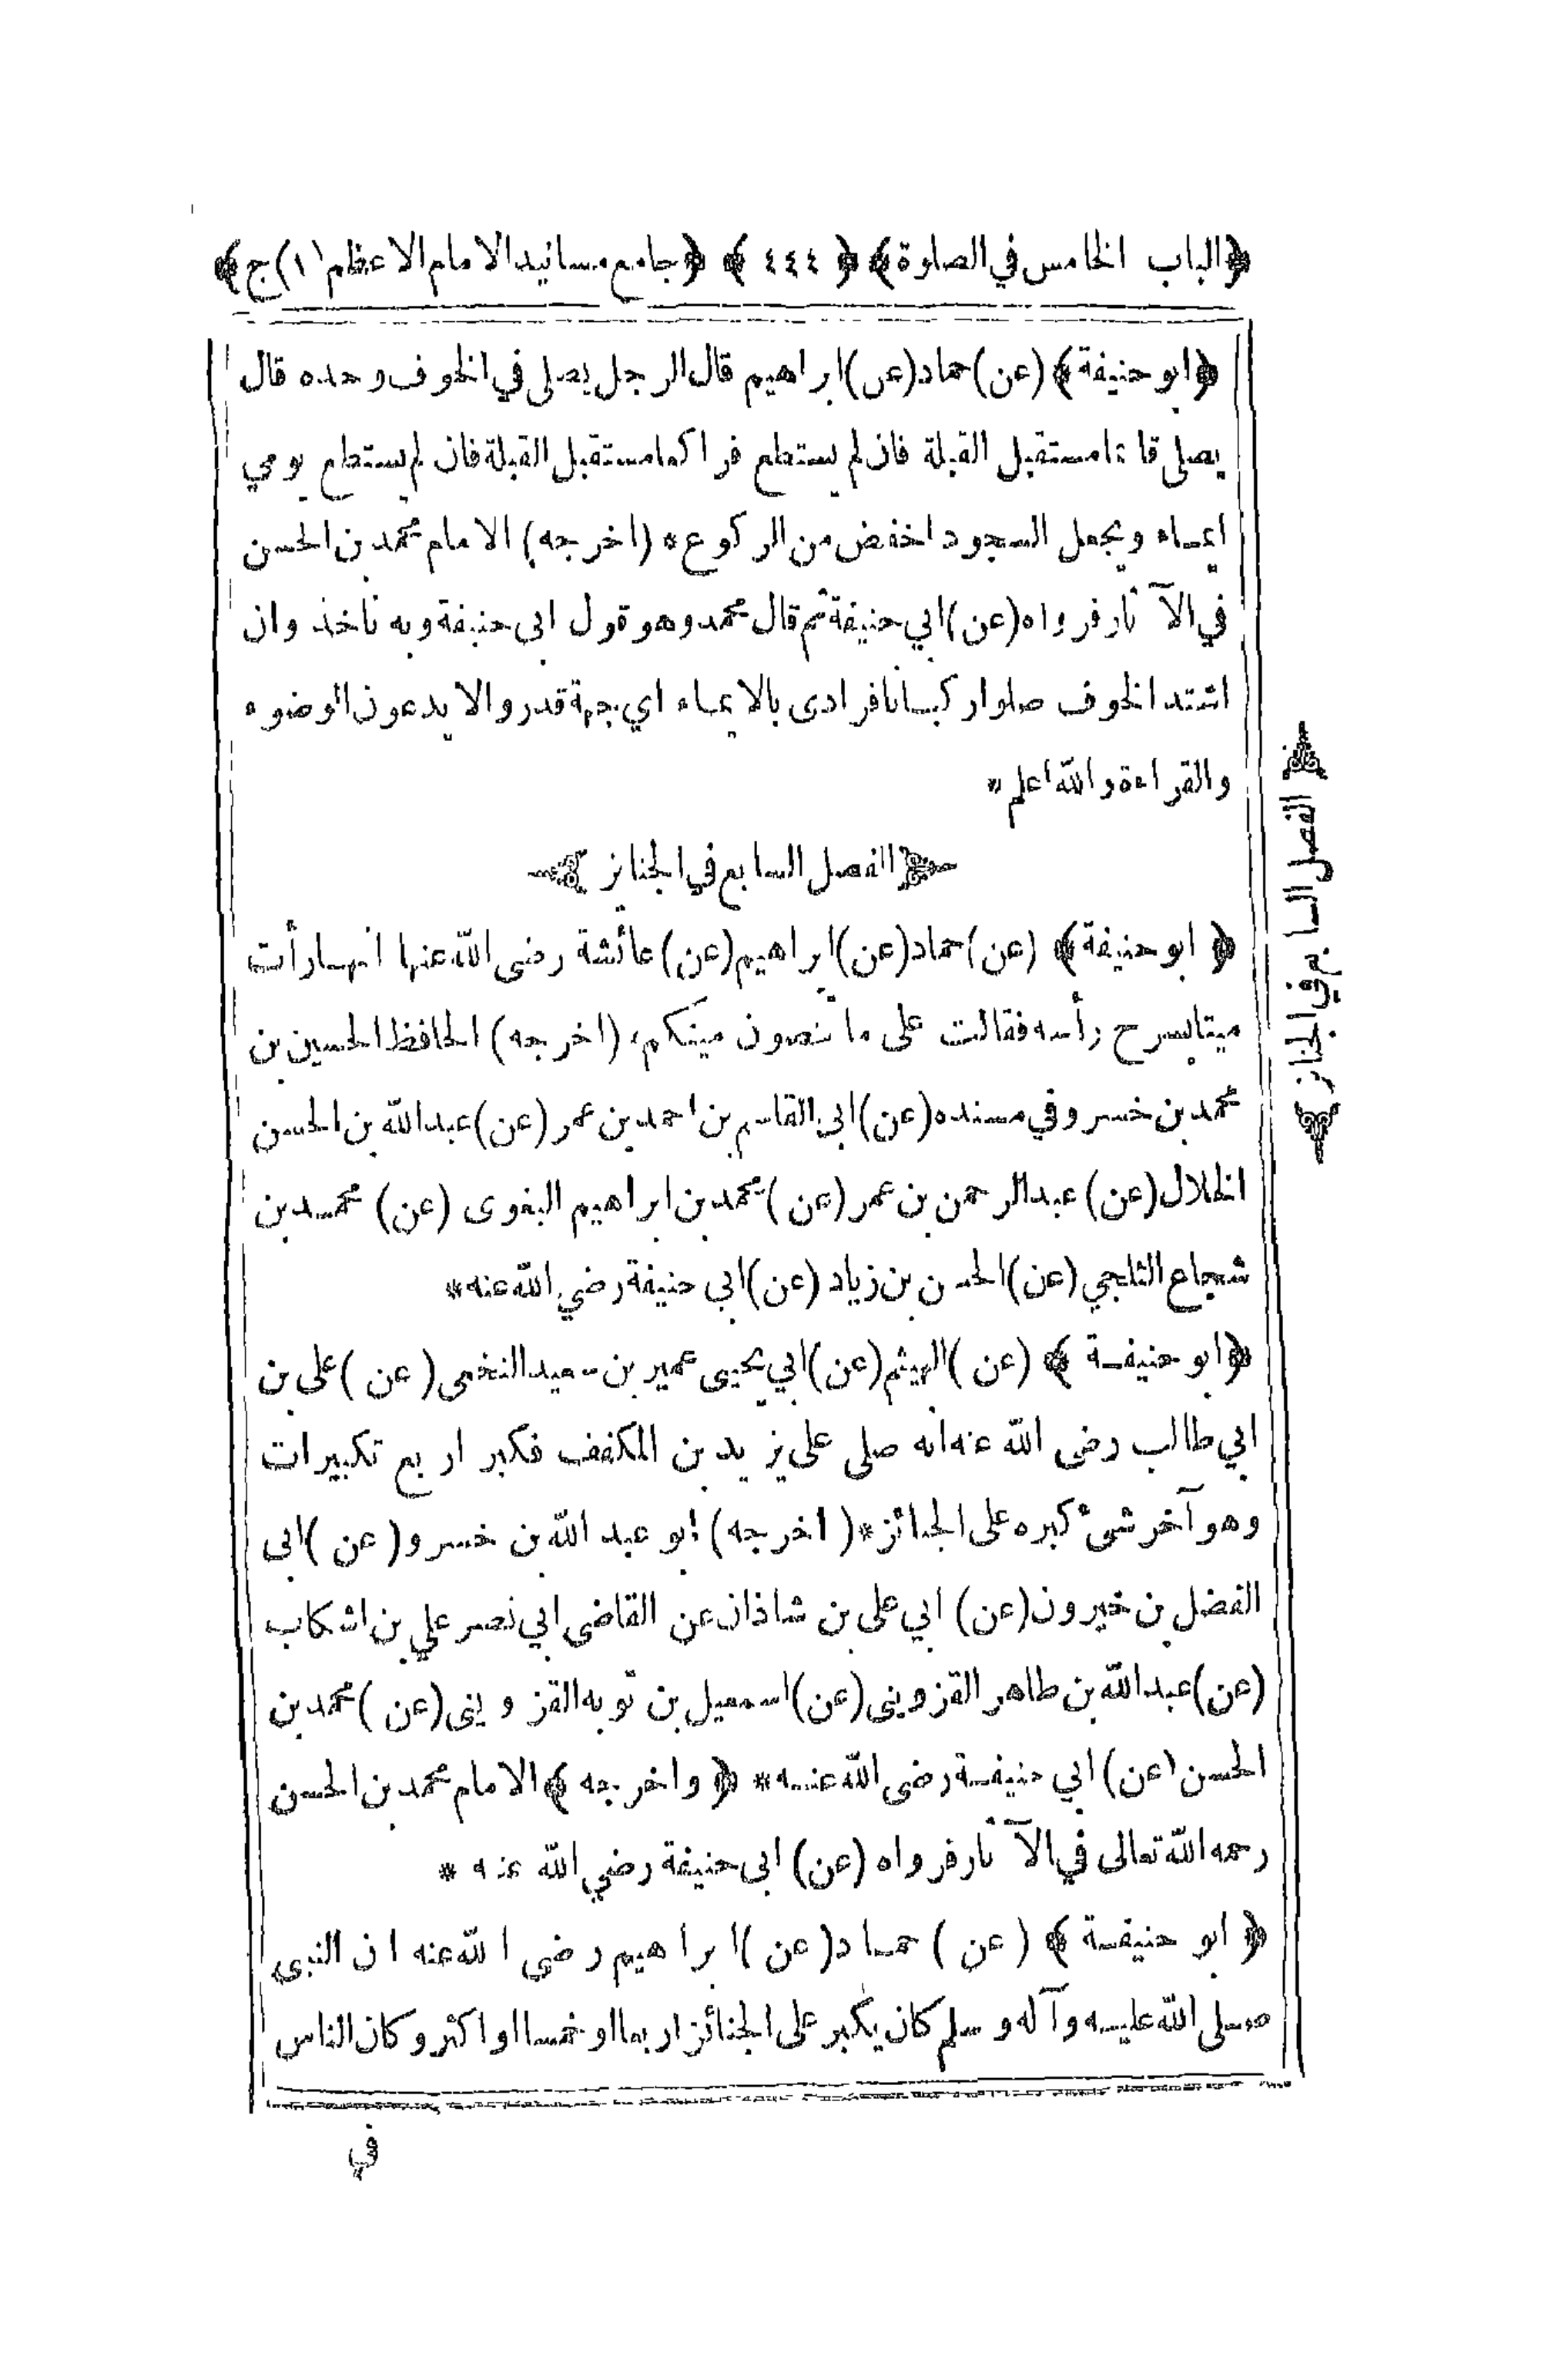 ﴿الباب الخامس في الصلوة﴾ ﴿ ٤٤٤ ﴾ ﴿جامع مسانيد الامام الاعظم (١)ج﴾
﴿ابو حنيفة﴾ (عن) حماد (عن) ابراهيم قال الرجل يصلى في الخوف وحده قال
يصلى قائما مستقبل القبلة فان لم يستطع فراكعا مستقبل القبلة فان لم يستطع يومي
ايماء ويجعل السجود اخفض من الركوع * (اخرجه) الامام محمد بن الحسن
في الآثار فرواه (عن) ابي حنيفة ثم قال محمد وهو قول ابى حنيفة وبه ناخذ وان
اشتد الخوف صلوا ركبانا فرادى بالايماء اي جهة قدروا لا يدعون الوضوء
والقراءة والله اعلم *
الفصل السابع في الجنائز
﴿ ابو حنيفة﴾ (عن) حماد (عن) ابراهيم (عن) عائشة رضى الله عنها انها رأت
ميتا يسرح رأسه فقالت على ما تنصون ميتكم، (اخرجه) الحافظ الحسين بن
محمد بن خسرو في مسنده (عن) ابى القاسم بن احمد بن عمر (عن) عبد الله بن الحسن
الخلال (عن) عبد الرحمن بن عمر (عن) محمد بن ابراهيم البغوى (عن) محمد بن
شجاع الثلجي (عن) الحسن بن زياد (عن) ابي حنيفة رضي الله عنه *
﴿ابو حنيفة ﴾ (عن) الهيثم (عن) ابي يحيى عمير بن سعيد النخعى (عن) على بن
ابي طالب رضى الله عنه انه صلى على يزيد بن المكفف فكبر اربع تكبيرات
وهو آخر شئ كبره على الجنائز * (اخرجه) ابو عبد الله بن خسرو (عن) ابى
الفضل بن خيرون (عن) ابي على بن شاذان عن القاضى ابي نصر علي بن اشكاب
(عن) عبد الله بن طاهر القزوينى (عن) اسمعيل بن توبه القزوينى (عن) محمد بن
الحسن (عن) ابي حنيفة رضى الله عنه * ﴿ واخرجه ﴾ الامام محمد بن الحسن
رحمه الله تعالى في الآثار فرواه (عن) ابى حنيفة رضي الله عنه *
﴿ ابو حنيفة ﴾ (عن) حماد (عن) ابراهيم رضى الله عنه ان النبى
صلى الله عليه وآله وسلم كان يكبر على الجنائز اربعا او خمسا او اكثر وكان الناس
في
الفصل السابع في الجنائز